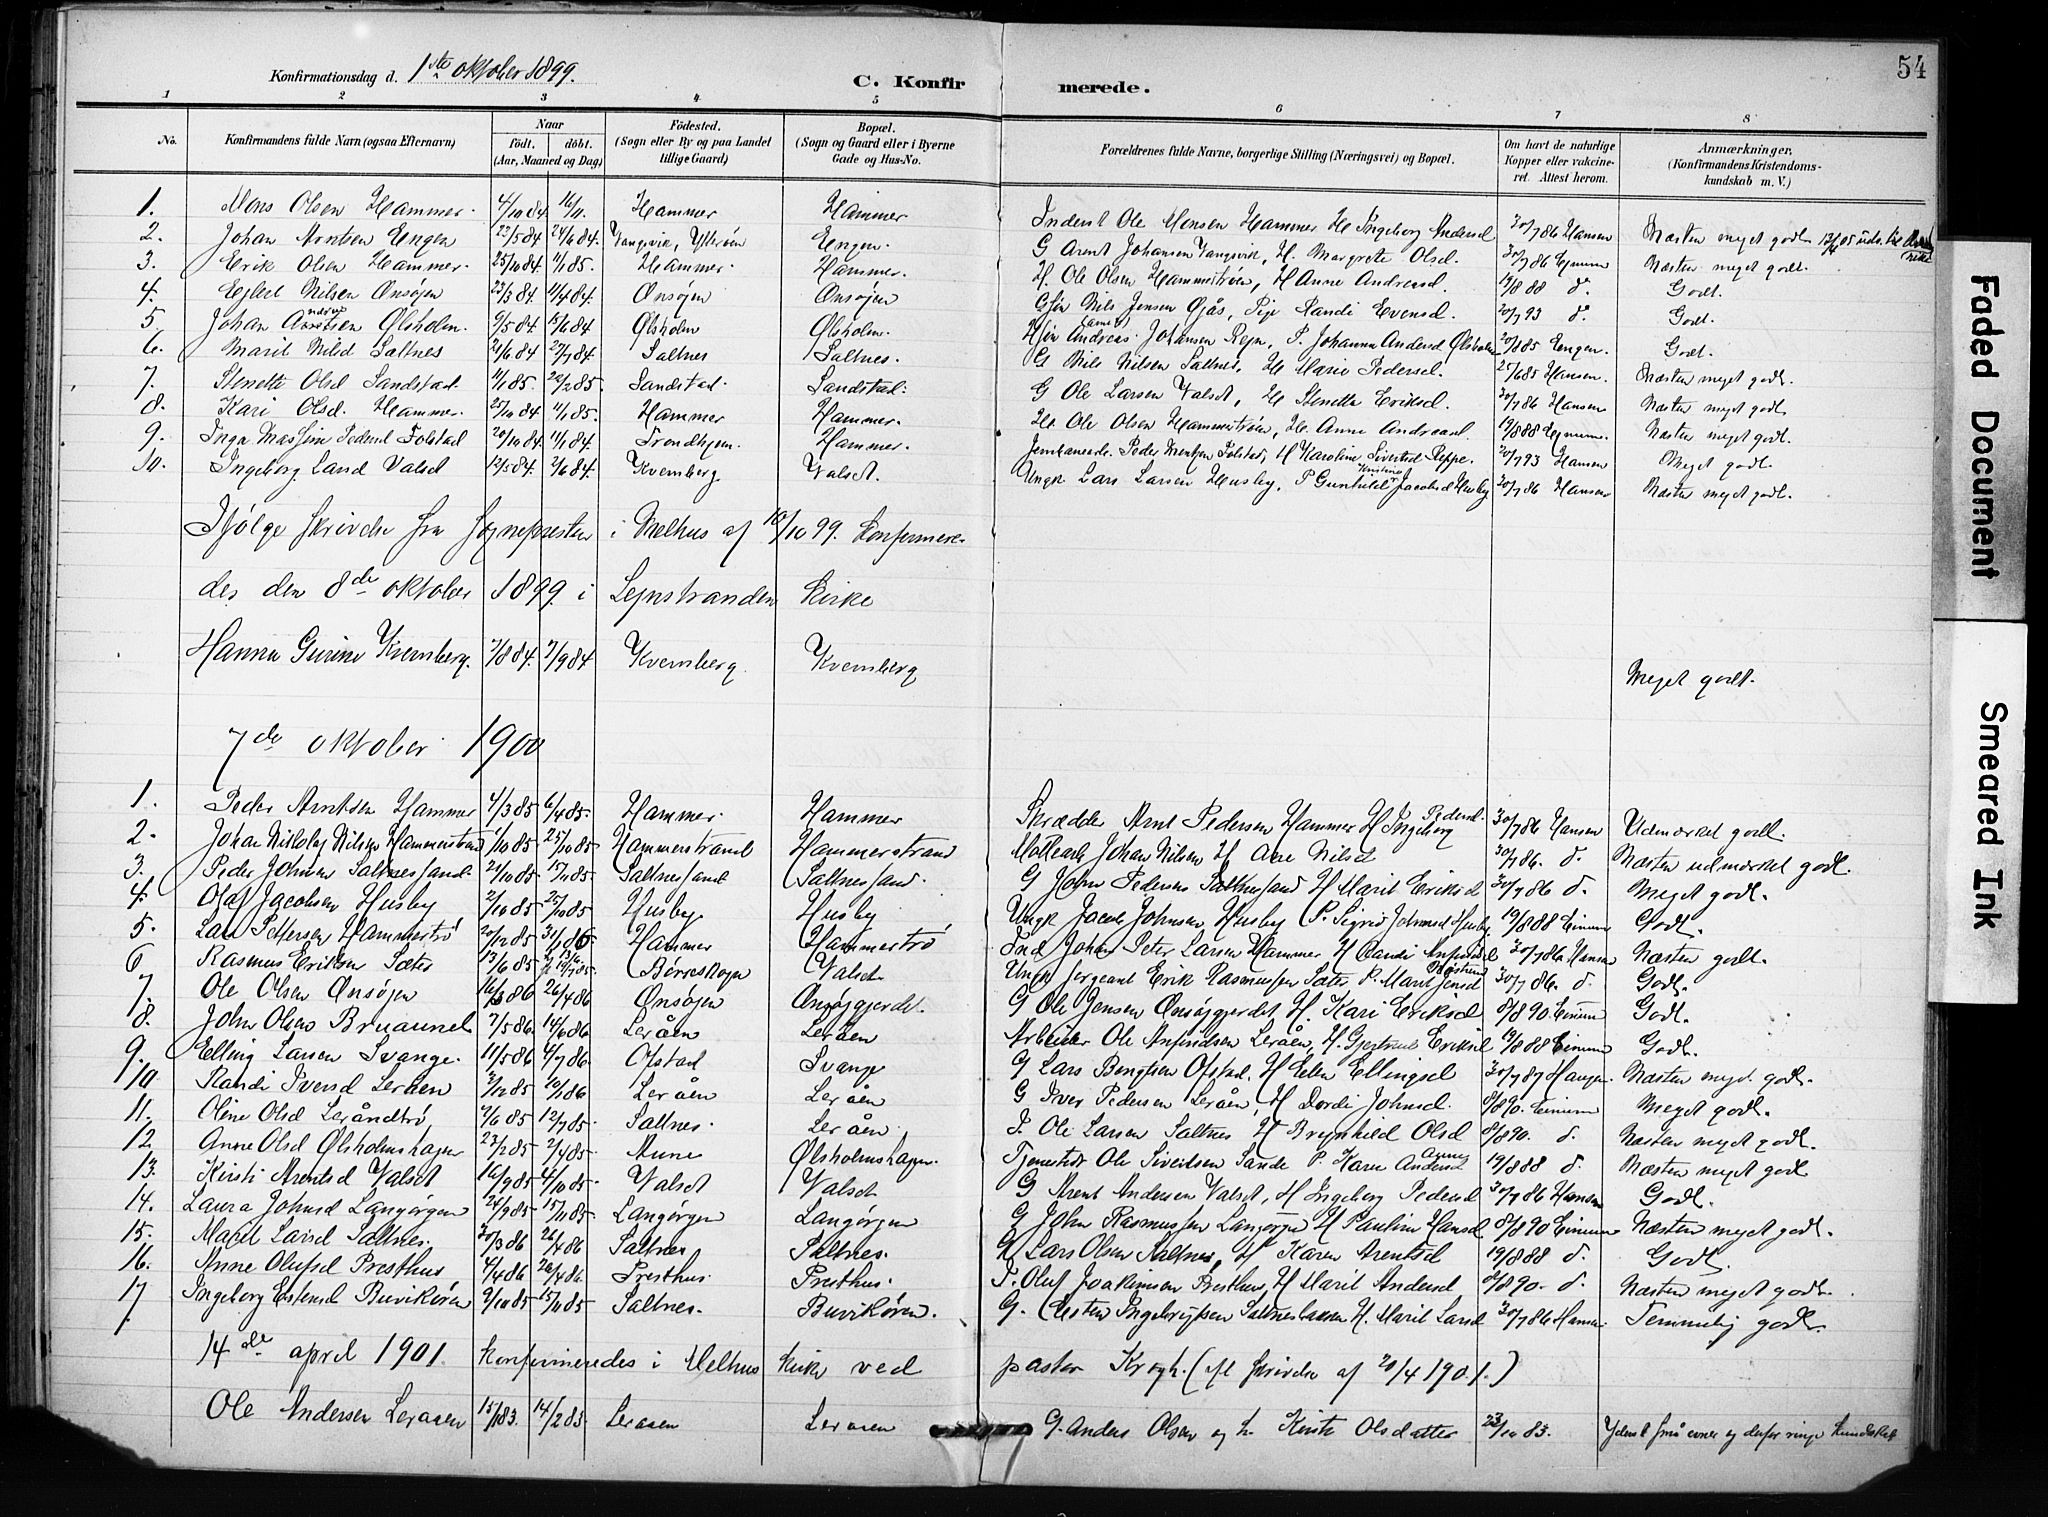 54
Konfirmationsdag d. 1ste oktober 1899.
C. Konfirmerede.
1 2 3 4 5 6 7 8
No. Konfirmandens fulde Navn (ogsaa Efternavn) Naar født. døbt. (Aar, Maaned og Dag) Fødested. (Sogn eller By og paa Landet tillige Gaard) Bopæl. (Sogn og Gaard eller i Byerne Gade og Hus-No. Forældrenes fulde Navne, borgerlige Stilling (Næringsvei) og Bopæl. Om havt de naturlige Kopper eller vakcineret. Attest herom. Anmærkninger. (Konfirmandens Kristendomskundskab m. V.)
1. Mons Olsen Hammer 4/10 84 16/11. Hammer Hammer Inderst Ole Monsen Hammer H Ingeborg Andersd 30/7 86 Hansen Næsten meget godt
2. Johan Arntsen Engen 22/5 84 24/6 84. Vangsvik, Ytterøen Engen. G Arent Johansen Vangsvik, H. Margrete Olsd. 30/7 86 Næsten meget godt.
3. Erik Olsen Hammer. 25/10 84. 11/1 85. Hammer Hammer. H. Ole Olsen Hammertrøen, H Anne Andreasd. 19/8 88 d. Godt.
4. Eglert Nilsen Ønsøjen 23/3 84. 11/4 84. Ønsøjen Ønsøjen Nils Jensen Gjås, Pige Randi Evensd. 20/7 93 d. Godt.
5. Johan Arntsen Ølsholm. 9/5 84 15/6 84 Ølsholm Ølsholm. Andreas Johansen P. Johanna Andersd Ølsholm 20/8 85 Engen. Godt.
6. Marit Nilsd Saltnes 21/6 84 27/7 84. Saltnes Saltnes. G Nils Nilsen Saltnes, H Marie Pedersd. 25/6 85 Hansen. Næsten meget godt.
7. Stenette Olsd Sandstad. 11/1 85. 22/2 85. Sandstad. Sandstad. G Ole Larsen Valset, H Stenette Eriksd. 30/7 86 Hansen Næsten meget godt.
8. Kari Olsd. Hammer. 25/10 84 11/1 85. Hammer Hammer. H. Ole Olsen Hammertrøen, H. Anne Andreasd. 19/8 88 Næsten meget godt.
9. Inga Massine Pedersd Folstad 20/10 84. 11/1 84. Trondhjem. Hammer. Peder Folstad, H Karoline Sivertsd Reppe. 20/7 93 Hansen Meget godt.
10. Ingeborg Larsd Valset 12/5 84. 2/6 84. Kvernberg Valset. Ungk Lars Larsen Husby, P Gunhild Jacobsd Husby 30/7 86 Hansen Næsten meget godt.
Ifølge skrivelse fra sognepresten i Melhus af 10/10 99. konfirmere-
des den 8de oktober 1899 i Lejnstranden kirke
Hanna Gurine Kvernberg. 7/8 84. 7/9 84. Kvernberg Kvernberg Meget godt.
7de oktober 1900
1. Peder Arntsen Hammer 4/3 85 6/4 85. Hammer. Hammer Skrædder Arnt Pedersen Hammer H Ingeborg Pedersd. 30/7 86 Hansen Udmærket godt.
2. Johan Nikolaj Nilsen Hammerstrand 1/10 85 25/10 85. Hammerstrand Hammerstrand Johan Nilsen H Ane Nilsd 30/7 86. d. Næsten udmærket godt.
3. Peder Johnsen Saltnessand. 24/10 85. 15/11 85. Saltnessand Saltnessand. G John Pedersen Saltnessand H Marit Eriksd 30/7 86 d. Meget godt.
4. Olaf Jacobsen Husby 2/10 85 25/10 85 Husby Husby Ungk Jacob Johnsen Husby P. Sigrid Johnsd Husby 19/8 88 Einum Godt.
5. Lars Petersen Hammertrø 20/12 85 31/1 86 Hammer Hammertrø Ind Johan Peter Larsen Hammer H Randi 30/7 86 Hansen Næsten godt.
6 Rasmus Eriksen Sæter 13/6 85 Børreskogen Valset Ungk sergeant Erik Rasmussen Sæter P. Marit Jensd 30/7 86. d. Godt.
7. Ole Olsen Ønsøjen 16/3 86 26/4 86 Ønsøjen Ønsøjgjerdet. G Ole Jensen Ønsøjgjerdet H. Kari Eriksd 8/8 90 Einum Godt.
8. John Olsen Bruaunet 7/5 86. 14/6 86. Leråen Leråen Arbeider Ole Anfindsen Leråen, H. Gjertrud Eriksd 19/8 88 Einum Godt.
9. Elling Larsen Svange. 11/5 86 4/7 86. Ofstad Svange G Lars Bengtsen Ofstad. H Ellen Ellingsd 30/7 87 Haugen. Næsten meget godt.
10 Randi Iversd Leråen 3/12 85 10/1 86 Leråen Leråen G Iver Pedersen Leråen, H Dordi Johnsd. 8/8 90. Einum Meget godt.
11. Oline Olsd Leråndtrø 9/6 85 12/7 85. Saltnes. Leråen. I. Ole Larsen Saltnes H Brynhild Olsd 8/8 90. d. Næsten meget godt.
12. Anne Olsd Ølsholmshagen 23/2 85. 2/4 85. Aune Ølsholmshagen. Tjenestdr Ole Sivertsen Sande P. Karen Anna Andersd 19/8 88 d. Næsten meget godt
13. Kirsti Arentsd Valset 16/9 85. 4/10 85. Valset Valset G Arent Andersen Valset, H Ingeborg Pedersd 30/7 86 Hansen Godt.
14. Laura Johnsd Langørgen 24/9 85 15/11 85. Langørgen Langørgen G John Rasmussen Langørgen H Pauline Hansd 8/8 90 Einum Næsten meget godt.
15. Marit Larsd Saltnes. 30/3 86 26/4 86 Saltnes Saltnes. G Lars Olsen Saltnes, H Karen Arentsd 19/8 88 d. Godt.
16. Anne Olufsd Presthus 4/4 86 26/4 86. Presthus. Presthus. I. Oluf Joakimsen Presthus, H Marit Andersd 8/8 90. d. Næsten meget godt.
17. Ingeborg Estensd Buvikøren 9/10 85 15/11 85 Saltnes. Buvikøren. G. Esten Ingebrigtsen H. Marit Larsd 30/7 86 Hansen Temmelig godt.
14de april 1901. konfirmeredes i Melhus kirke ved pastor Krogh. (efl skrivelse af 20/4 1901.)
Ole Andersen Leraaen 15/1 83. 14/2 83. Leraaen Leraaen G. Anders Olsen og h. Kirsti Olsdatter 23/10 83. Yderst små evner og derfor ringe kundskab
Faded Document
Smeared Ink